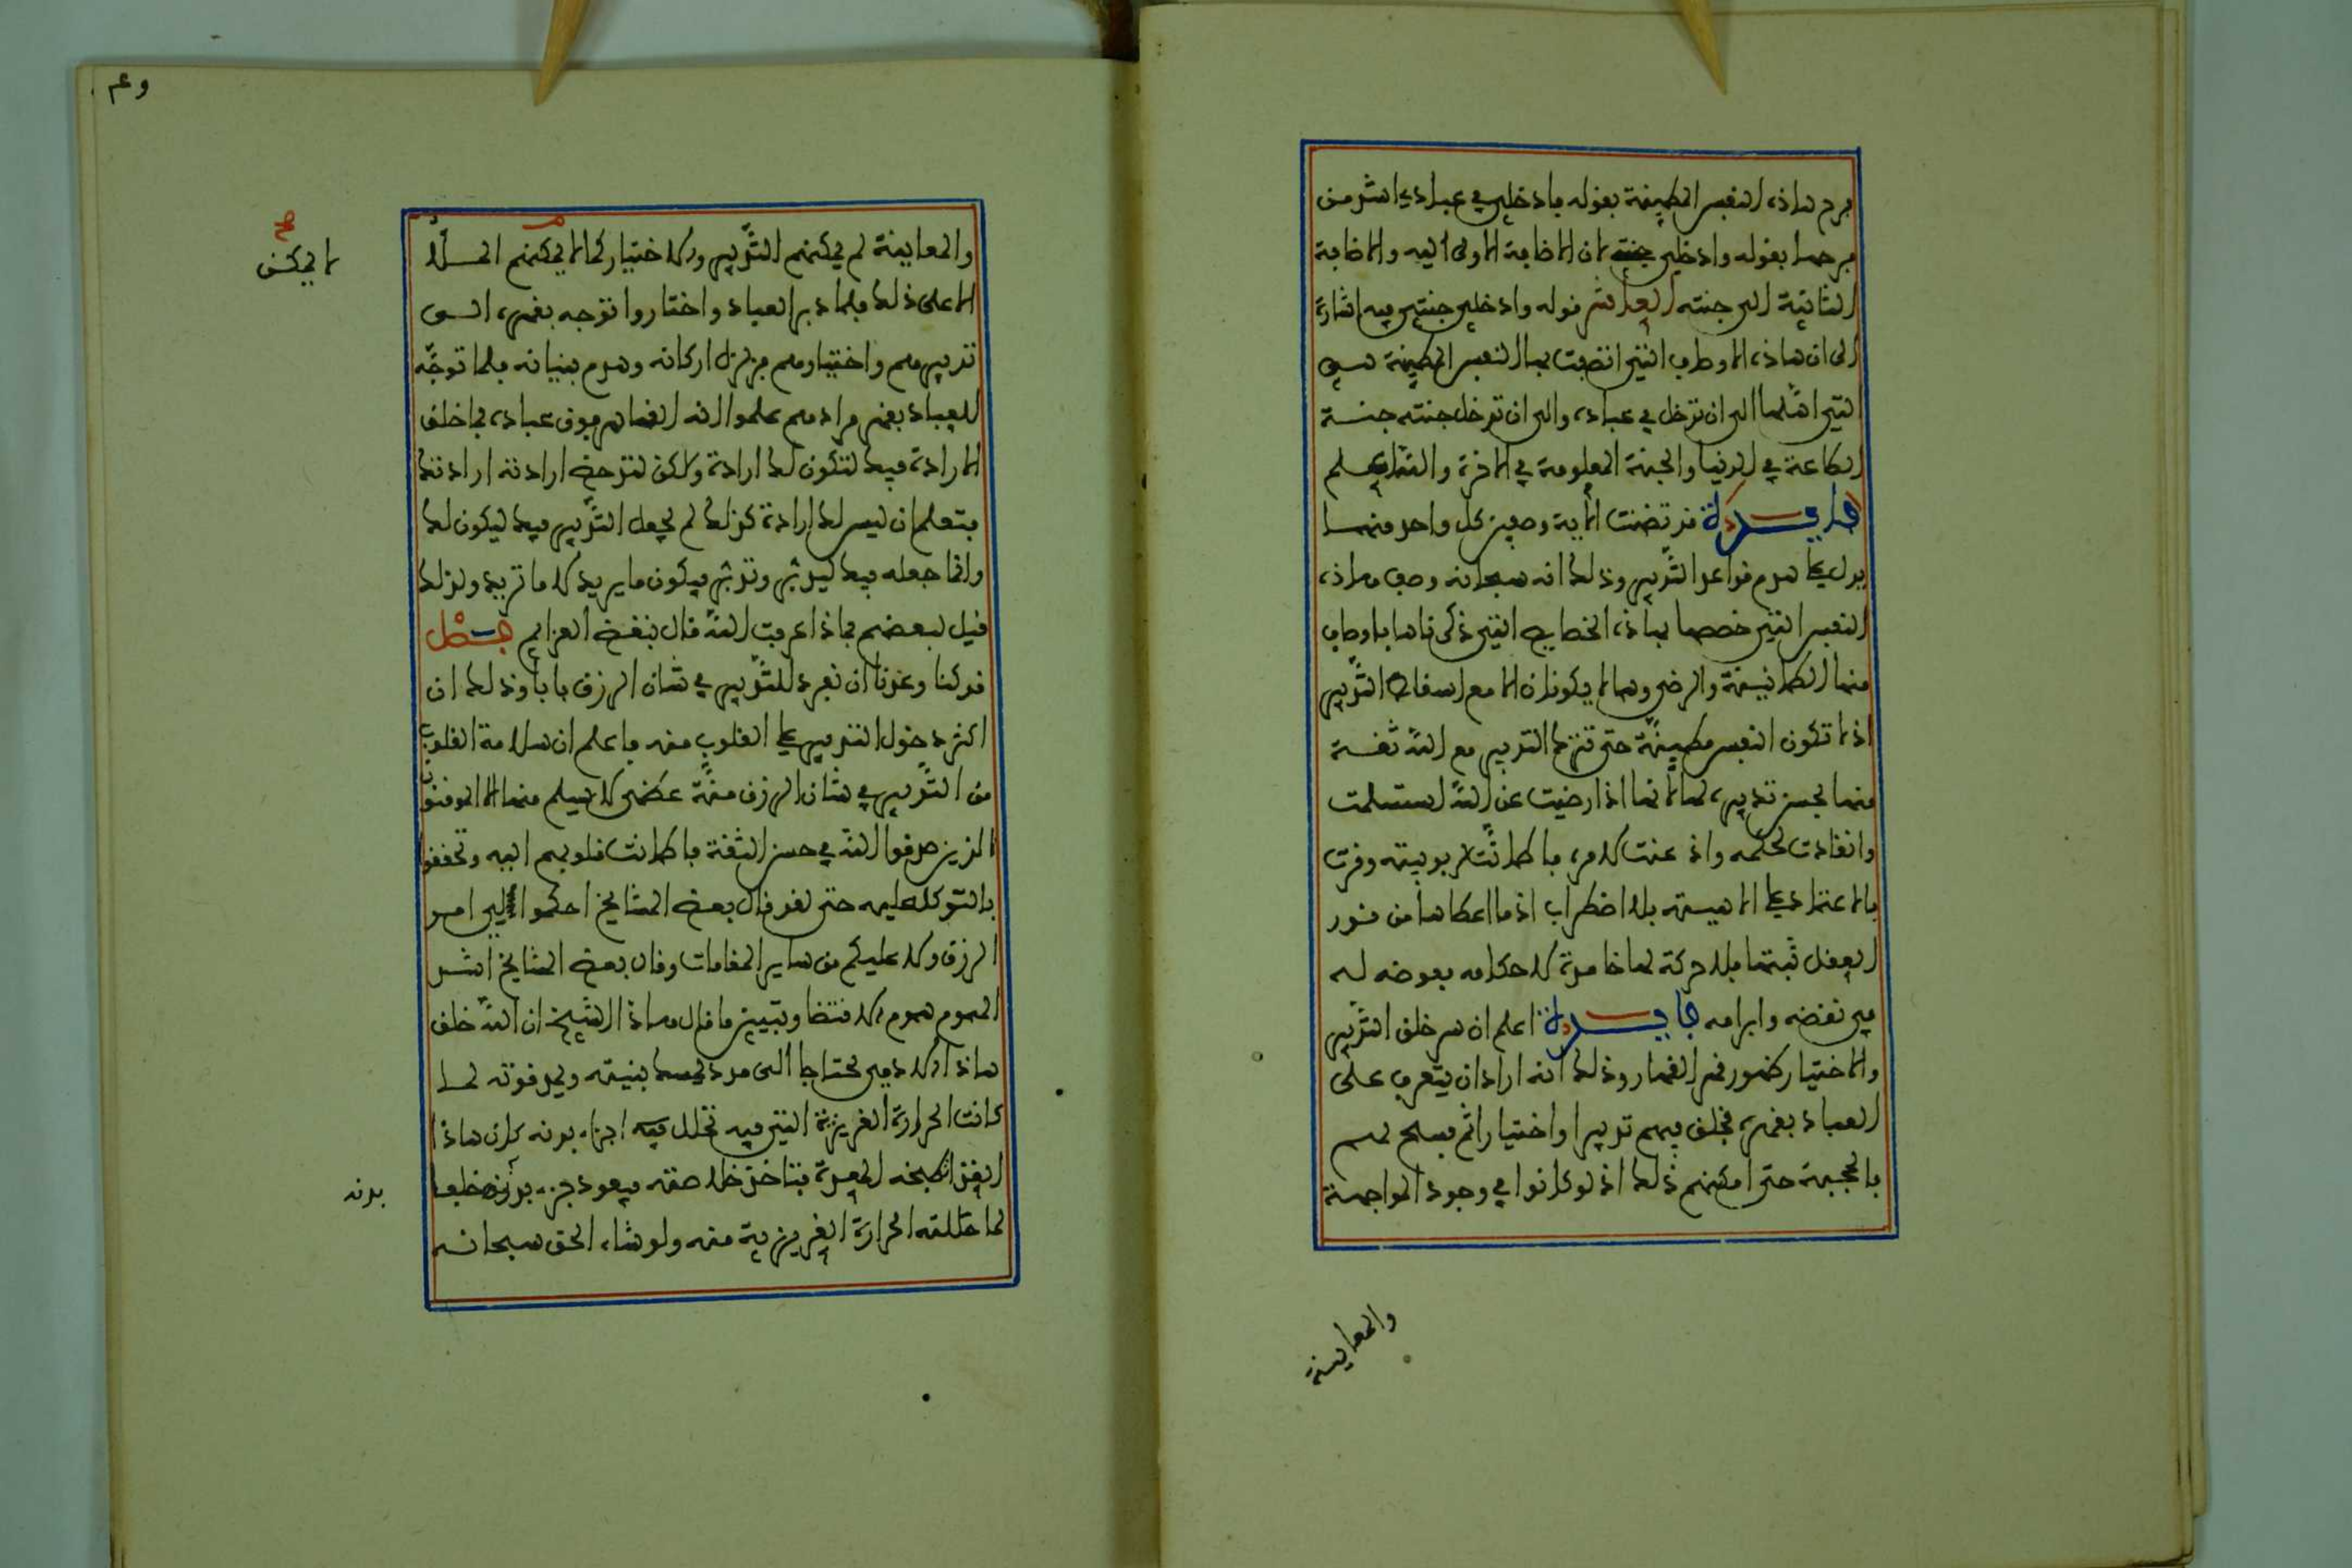 فرح هاذه النفس المطمينة بقوله فادخلي في عبادي اشد من
فرحها بقوله وادخلي جنتي لان الاضافة الاولى اليه والاضافة
الثانية الى جنته العاشر قوله وادخلي جنتي فيه اشارة
الى ان هاذه الاوصاف التي اتصفت بها النفس المطمينة هي
التي اهلتها الى ان تدخل في عباده والى ان تدخل جنته جنة
الطاعة في الدنيا والجنة المعلومة في الاخرة والله اعلم
فايدة قد تضمنت الاية وصفين كل واحد منهما
يدل على هدم قواعد التدبير وذلك انه سبحانه وصف هاذه
النفس التي خصصها بهاذه الخصايص التي ذكرناها باوصاف
منها الطمانينة والرضى وهما لا يكونان الا مع اسقاط التدبير
اذ لا تكون النفس مطمينة حتى تترك التدبير مع الله ثقة
منها بحسن تدبيره لها لانها اذا رضيت عن الله استسلمت
وانقادت لحكمه واذعنت لامره فاطمانت لربوبيته وقرت
بالاعتماد على الاهيته بلا اضطراب اذ ما اعطاها من نور
العقل ثبتها فلا حركة لها خامدة لاحكامه مفوضه له
في نقضه وابرامه فايدة اعلم ان سر خلق التدبير
والاختيار ظهور قهر القهار وذلك انه اراد ان يتعرف على
العباد بقهره فخلق فيهم تدبيرا واختيارا ثم فسح لهم
بالحجبة حتى امكنهم ذلك اذ لو كانوا في وجود المواجهة
والمعاينة
والمعاينة لم يمكنهم التدبير والاختيار كما لا يمكن الملا
الاعلى ذلك فلما دبر العباد واختاروا توجه بقهره الى
تدبيرهم واختيارهم فزلزل اركانه وهدم بنيانه فلما توجه
للعباد بقهر مرادهم علموا انه القاهر فوق عباده فما خلق
الارادة فيك لتكون لك ارادة ولكن لتدحض ارادته ارادتك
فتعلم ان ليس لك ارادة كذلك لم يجعل التدبير فيك ليكون لك
وانما جعله فيك ليدبر وتدبر فيكون ما يريد لا ما تريد ولذلك
قيل لبعضهم بماذا عرفت الله قال بنقض العزايم فصل
قد كنا وعدنا ان نفرد للتدبير في شان الرزق بابا وذلك ان
اكثر دخول التدبير على القلوب منه فاعلم ان سلامة القلوب
من التدبير في شان الرزق منة عظمى لا يسلم منها الا الموفقون
الذين صدقوا الله في حسن الثقة فاطمانت قلوبهم اليه وتحققوا
بالتوكل عليه حتى لقد قال بعض المشايخ احكموا لي امر
الرزق ولا عليكم من ساير المقامات وقال بعض المشايخ اشد
الهموم هموم الاقتضا وتبيين ما قال هاذا الشيخ ان الله خلق
هاذا الادمي محتاجا الى مدد يمسك بنيته ويمد قوته لما
كانت الحرارة الغريزية التي فيه تحلل اجزاء بدنه كان هاذا
الغذا تطبخه المعدة فتاخذ خلاصته فيعود جزء بدنه خلفا
لما حللته الحرارة الغريزية منه ولو شاء الحق سبحانه
لا يمكن
صح
بدنه